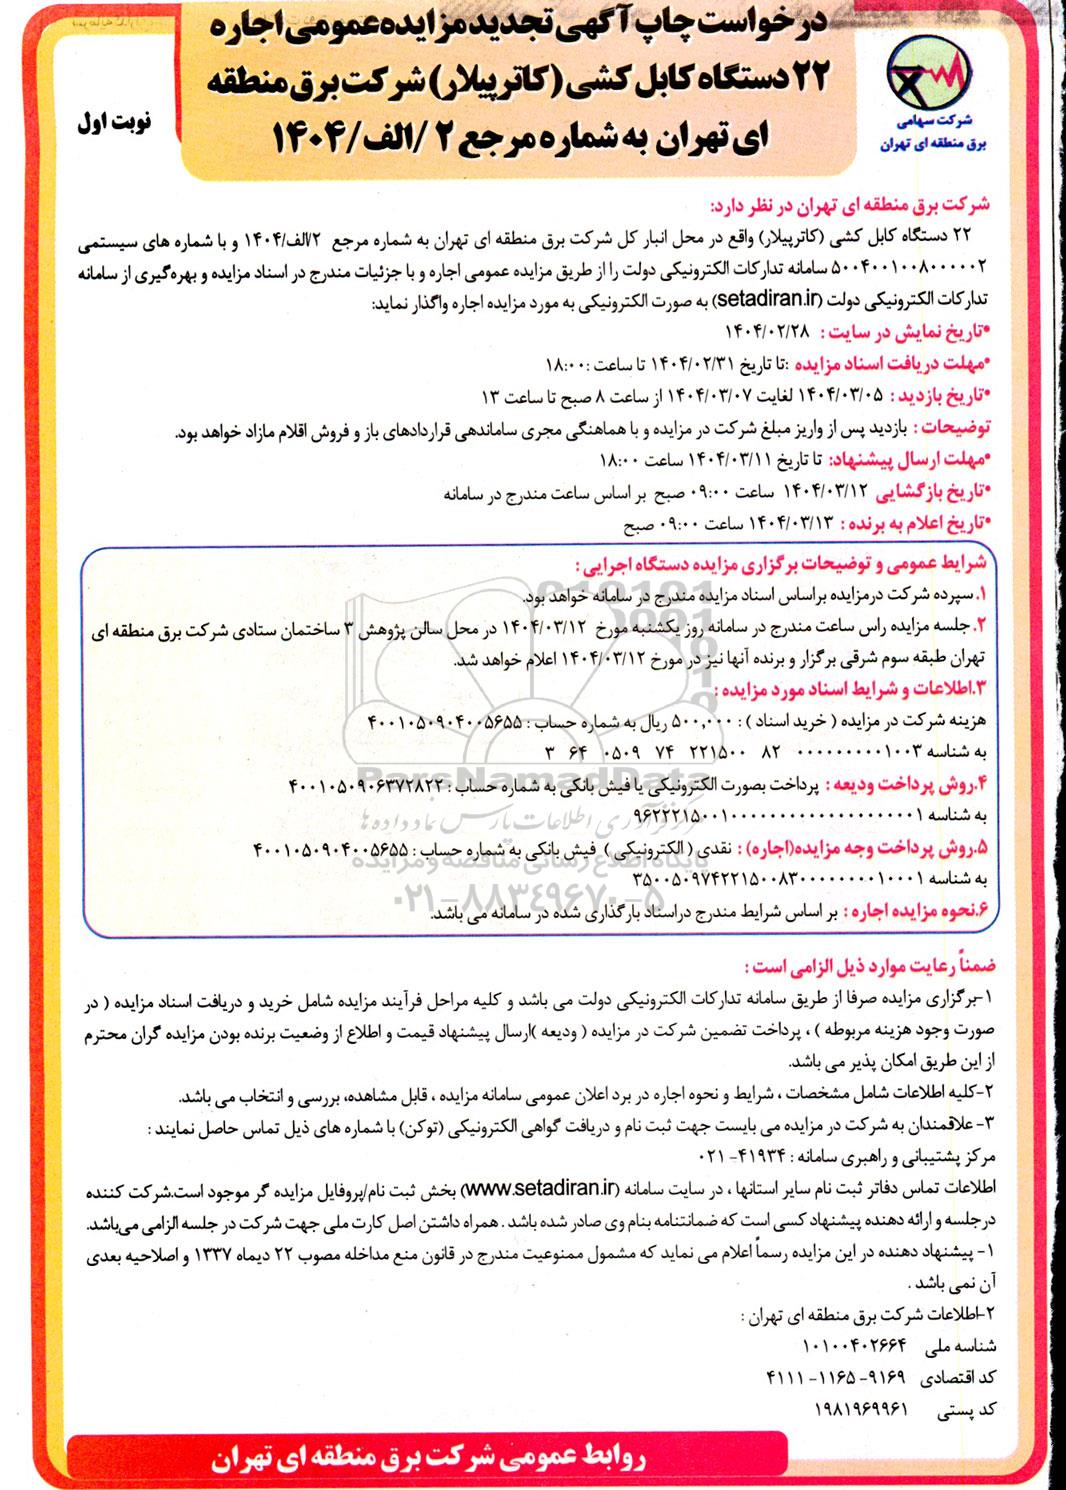 درخواست چاپ آگهی تجدید مزایده عمومی اجاره
۲۲ دستگاه کابل کشی (کاترپیلار) شرکت برق منطقه
ای تهران به شماره مرجع ۲ /الف/۱۴۰۴
نوبت اول
شرکت سهامی
برق منطقه ای تهران
شرکت برق منطقه ای تهران در نظر دارد:
۲۲ دستگاه کابل کشی (کاترپیلار) واقع در محل انبار کل شرکت برق منطقه ای تهران به شماره مرجع ۲/الف/۱۴۰۴ و با شماره های سیستمی
۵۰۰۴۰۰۱۰۰۸۰۰۰۰۰۲ سامانه تدارکات الکترونیکی دولت را از طریق مزایده عمومی اجاره و با جزئیات مندرج در اسناد مزایده و بهره‌گیری از سامانه
تدارکات الکترونیکی دولت (setadiran.ir) به صورت الکترونیکی به مورد مزایده اجاره واگذار نماید:
•تاریخ نمایش در سایت : ۱۴۰۴/۰۲/۲۸
•مهلت دریافت اسناد مزایده :تا تاریخ ۱۴۰۴/۰۲/۳۱ تا ساعت :۱۸:۰۰
•تاریخ بازدید : ۱۴۰۴/۰۳/۰۵ لغایت ۱۴۰۴/۰۳/۰۷ از ساعت ۸ صبح تا ساعت ۱۳
توضیحات : بازدید پس از واریز مبلغ شرکت در مزایده و با هماهنگی مجری ساماندهی قراردادهای باز و فروش اقلام مازاد خواهد بود.
•مهلت ارسال پیشنهاد: تا تاریخ ۱۴۰۴/۰۳/۱۱ ساعت ۱۸:۰۰
•تاریخ بازگشایی ۱۴۰۴/۰۳/۱۲ ساعت ۰۹:۰۰ صبح بر اساس ساعت مندرج در سامانه
•تاریخ اعلام به برنده : ۱۴۰۴/۰۳/۱۳ ساعت ۰۹:۰۰ صبح
شرایط عمومی و توضیحات برگزاری مزایده دستگاه اجرایی :
۱.سپرده شرکت درمزایده براساس اسناد مزایده مندرج در سامانه خواهد بود.
۲.جلسه مزایده راس ساعت مندرج در سامانه روز یکشنبه مورخ ۱۴۰۴/۰۳/۱۲ در محل سالن پژوهش ۳ ساختمان ستادی شرکت برق منطقه ای
تهران طبقه سوم شرقی برگزار و برنده آنها نیز در مورخ ۱۴۰۴/۰۳/۱۲ اعلام خواهد شد.
۳.اطلاعات و شرایط اسناد مورد مزایده :
هزینه شرکت در مزایده ( خرید اسناد ) : ۵۰۰,۰۰۰ ریال به شماره حساب : ۴۰۰۱۰۵۰۹۰۴۰۰۵۶۵۵
به شناسه ۰۰۰۰۰۰۰۰۰۱۰۰۳ ۸۲ ۲۲۱۵۰۰ ۷۴ ۰۵۰۹ ۶۴ ۳
ParsNamadData
۴.روش پرداخت ودیعه : پرداخت بصورت الکترونیکی یا فیش بانکی به شماره حساب : ۴۰۰۱۰۵۰۹۰۶۳۷۲۸۲۲
به شناسه ۹۶۲۲۲۱۵۰۰۱۰۰۰۰۰۰۰۰۰۰۰۰۰۰۰۰۰۰۱
مرکز فرآوری اطلاعات پارس نماد داده ها
۵.روش پرداخت وجه مزایده(اجاره) : نقدی ( الکترونیکی ) فیش بانکی به شماره حساب : ۴۰۰۱۰۵۰۹۰۴۰۰۵۶۵۵
پایگاه اطلاع رسانی مناقصه و مزایده
به شناسه ۳۵۰۰۵۰۹۷۴۲۲۱۵۰۰۸۳۰۰۰۰۰۰۰۰۱۰۰۰۱
۰۲۱-۸۸۳۴۹۶۷۰-۵
۶.نحوه مزایده اجاره : بر اساس شرایط مندرج دراسناد بارگذاری شده در سامانه می باشد.
ضمناً رعایت موارد ذیل الزامی است :
۱-برگزاری مزایده صرفا از طریق سامانه تدارکات الکترونیکی دولت می باشد و کلیه مراحل فرآیند مزایده شامل خرید و دریافت اسناد مزایده ( در
صورت وجود هزینه مربوطه ) ، پرداخت تضمین شرکت در مزایده ( ودیعه )ارسال پیشنهاد قیمت و اطلاع از وضعیت برنده بودن مزایده گران محترم
از این طریق امکان پذیر می باشد.
۲-کلیه اطلاعات شامل مشخصات ، شرایط و نحوه اجاره در برد اعلان عمومی سامانه مزایده ، قابل مشاهده، بررسی و انتخاب می باشد.
۳- علاقمندان به شرکت در مزایده می بایست جهت ثبت نام و دریافت گواهی الکترونیکی (توکن) با شماره های ذیل تماس حاصل نمایند :
مرکز پشتیبانی و راهبری سامانه : ۴۱۹۳۴- ۰۲۱
اطلاعات تماس دفاتر ثبت نام سایر استانها ، در سایت سامانه (www.setadiran.ir) بخش ثبت نام/پروفایل مزایده گر موجود است.شرکت کننده
درجلسه و ارائه دهنده پیشنهاد کسی است که ضمانتنامه بنام وی صادر شده باشد . همراه داشتن اصل کارت ملی جهت شرکت در جلسه الزامی می‌باشد.
۱- پیشنهاد دهنده در این مزایده رسماً اعلام می نماید که مشمول ممنوعیت مندرج در قانون منع مداخله مصوب ۲۲ دیماه ۱۳۳۷ و اصلاحیه بعدی
آن نمی باشد .
۲-اطلاعات شرکت برق منطقه ای تهران :
شناسه ملی ۱۰۱۰۰۴۰۲۶۶۴
کد اقتصادی ۹۱۶۹- ۱۱۶۵- ۴۱۱۱
کد پستی ۱۹۸۱۹۶۹۹۶۱
روابط عمومی شرکت برق منطقه ای تهران